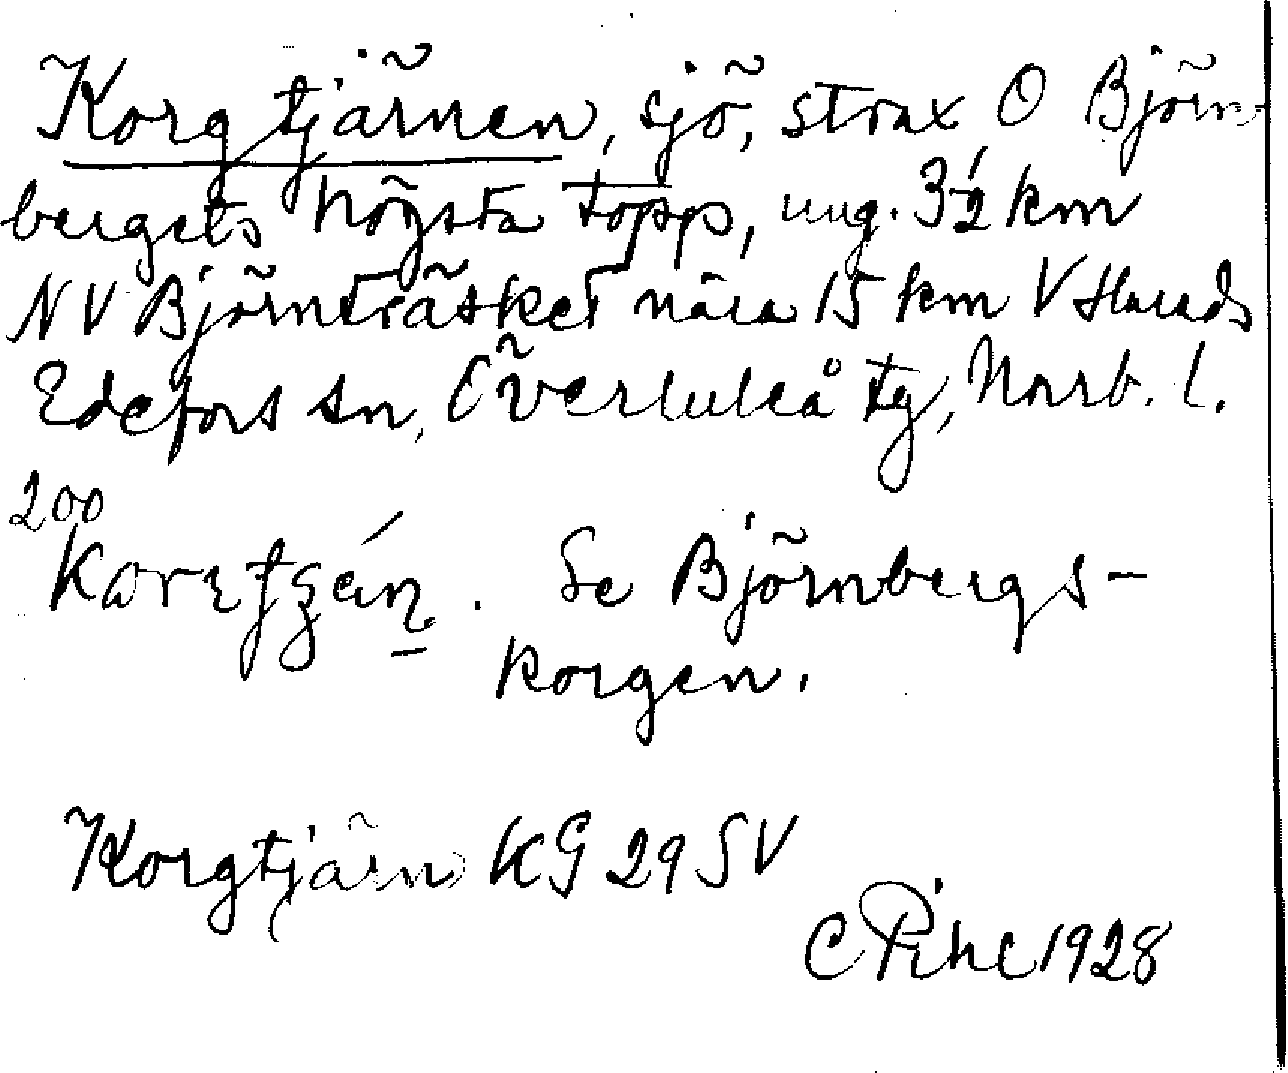 Korgtjärnen, sjö, strax O Björn-
bergets högsta topp, ung. 3½ km
NV Björnträsket nära 15 km V Harads
Edefors sn, Överluleå tg, Norrb. l.
200
Se Björnbergs-
korgen.
Korgtjärn KG 29 SV
C Pihl 1928